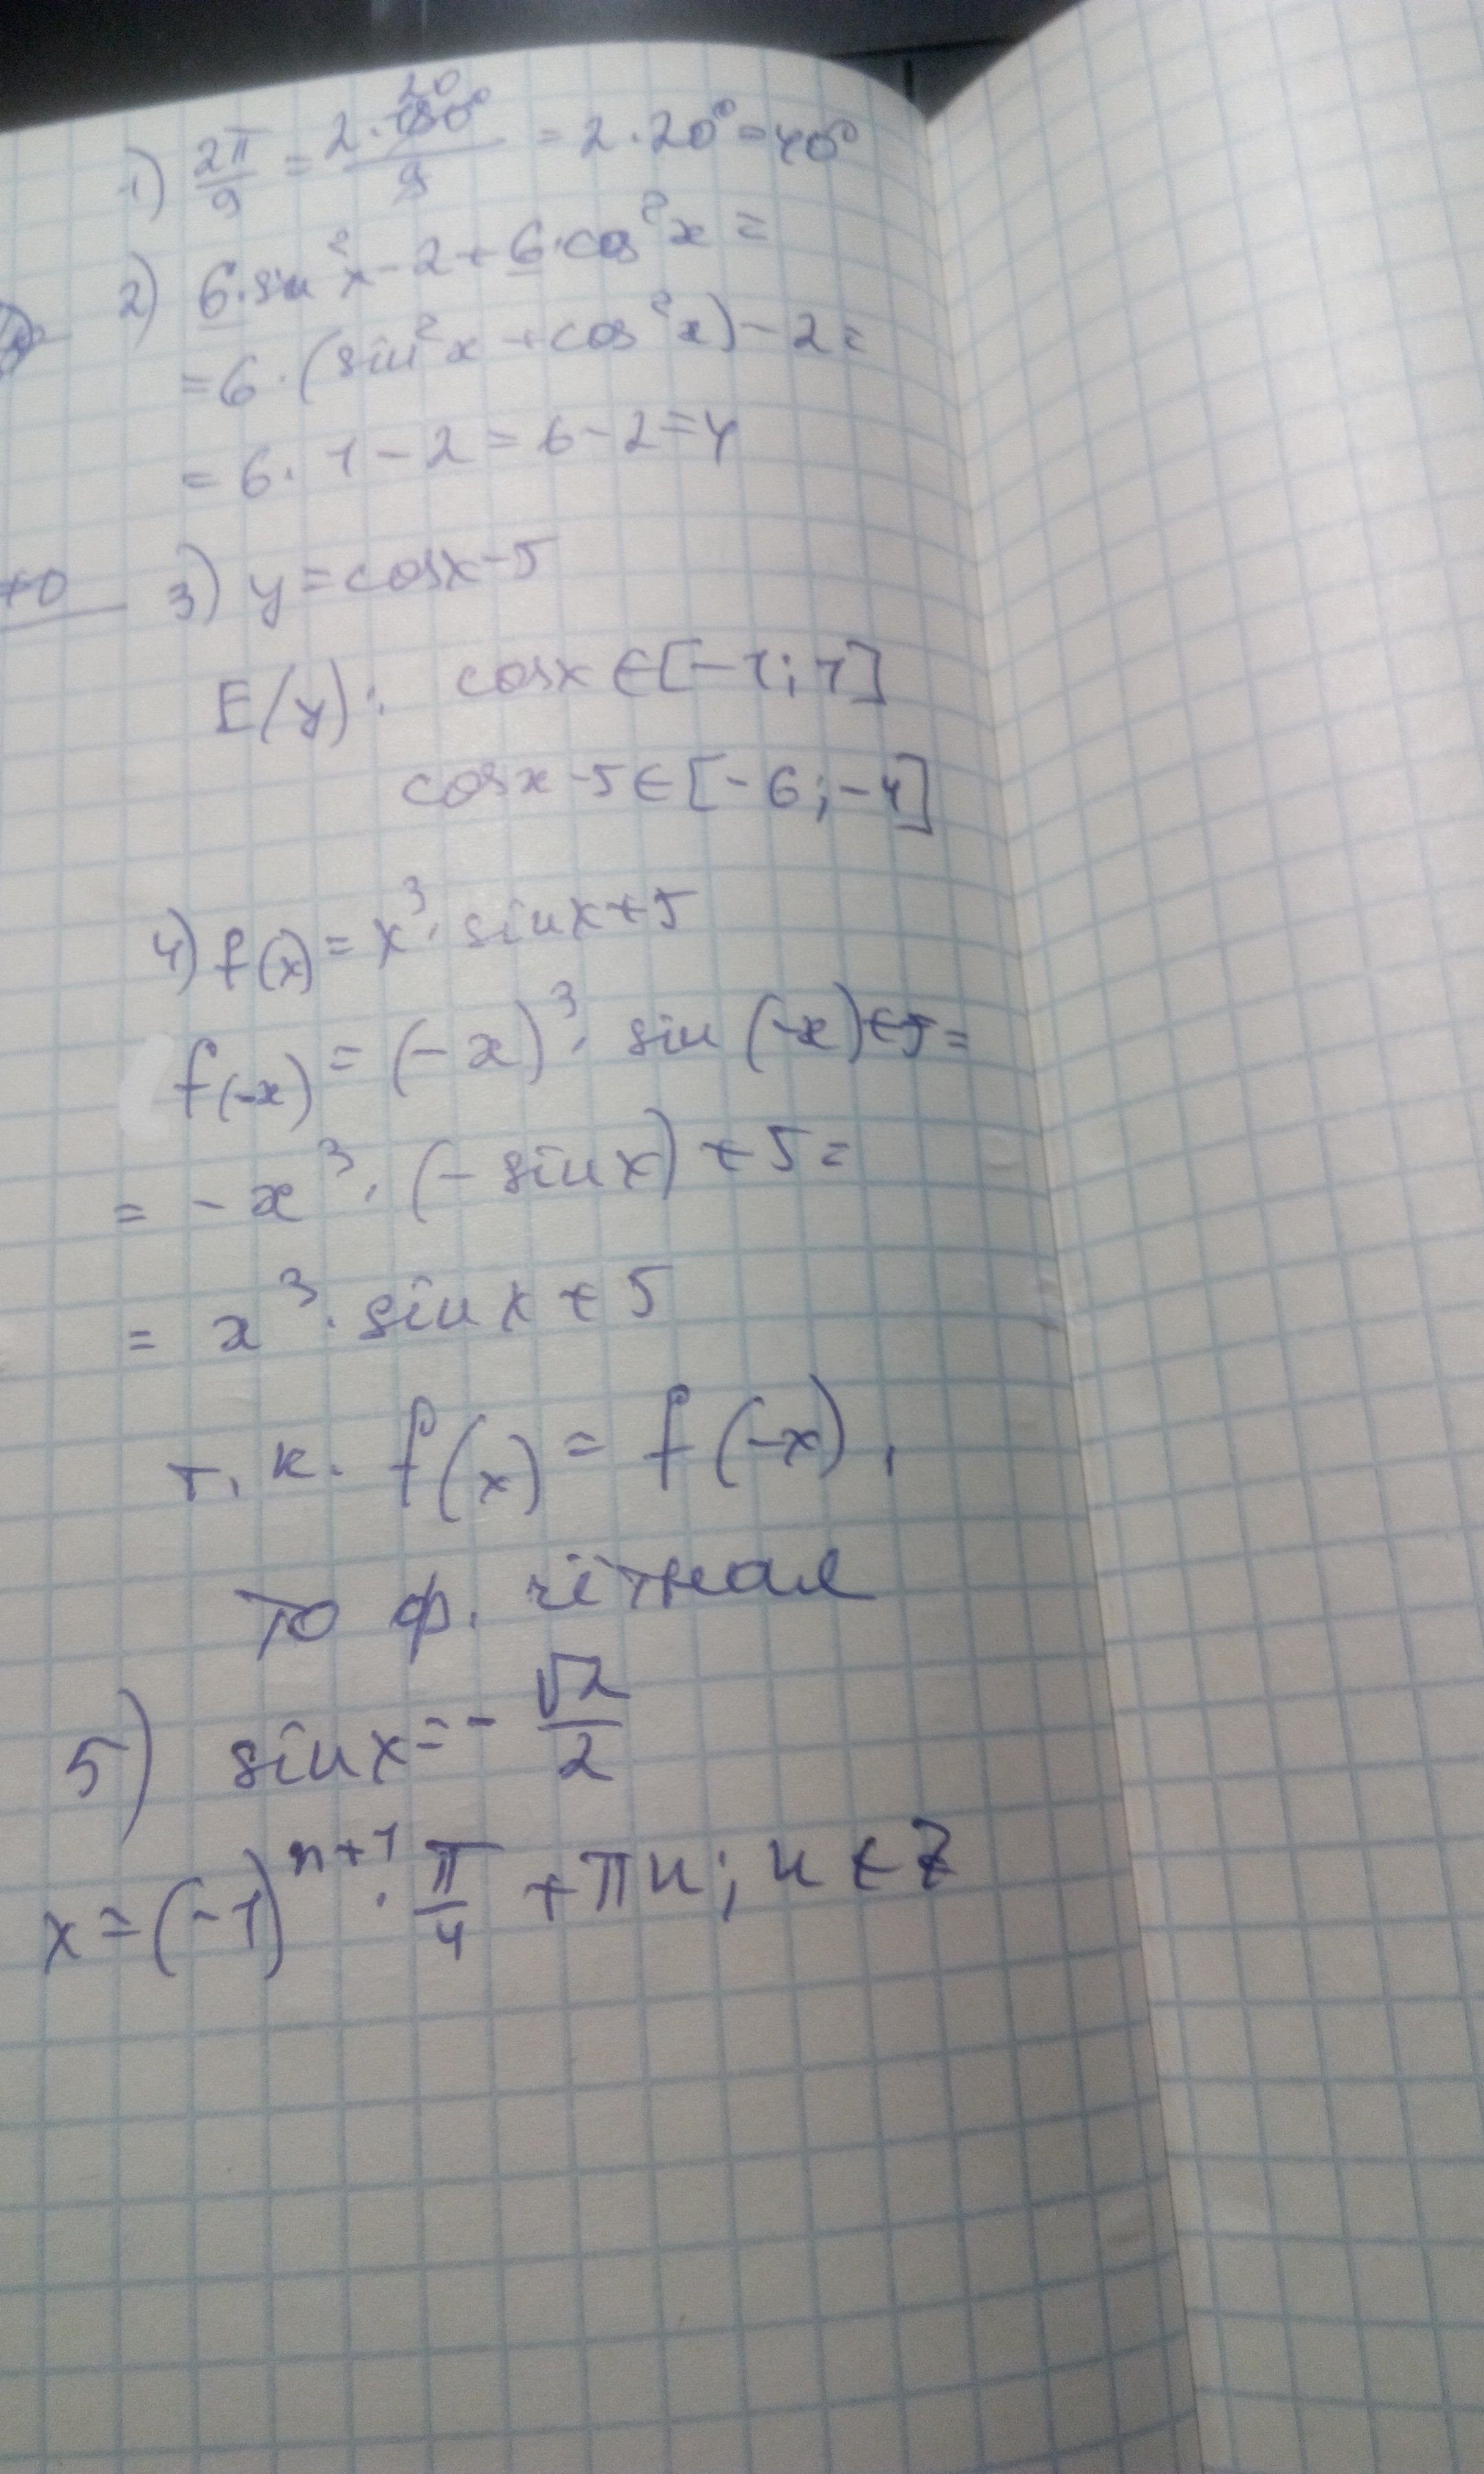 1) 2π/9 = 2·180°/9 = 2·20° = 40°
20
2) 6·sin²x - 2 + 6·cos²x =
= 6·(sin²x + cos²x) - 2 =
= 6·1 - 2 = 6 - 2 = 4
≠0
3) y = cosx - 5
E(y): cosx ∈ [-1; 1]
cosx - 5 ∈ [-6; -4]
4) f(x) = x³·sinx + 5
f(-x) = (-x)³·sin(-x) + 5 =
= -x³·(-sinx) + 5 =
= x³·sinx + 5
т.к. f(x) = f(-x),
то ф. чётная
5) sinx = -√2/2
x = (-1)ⁿ⁺¹·π/4 + πn; n ∈ Z